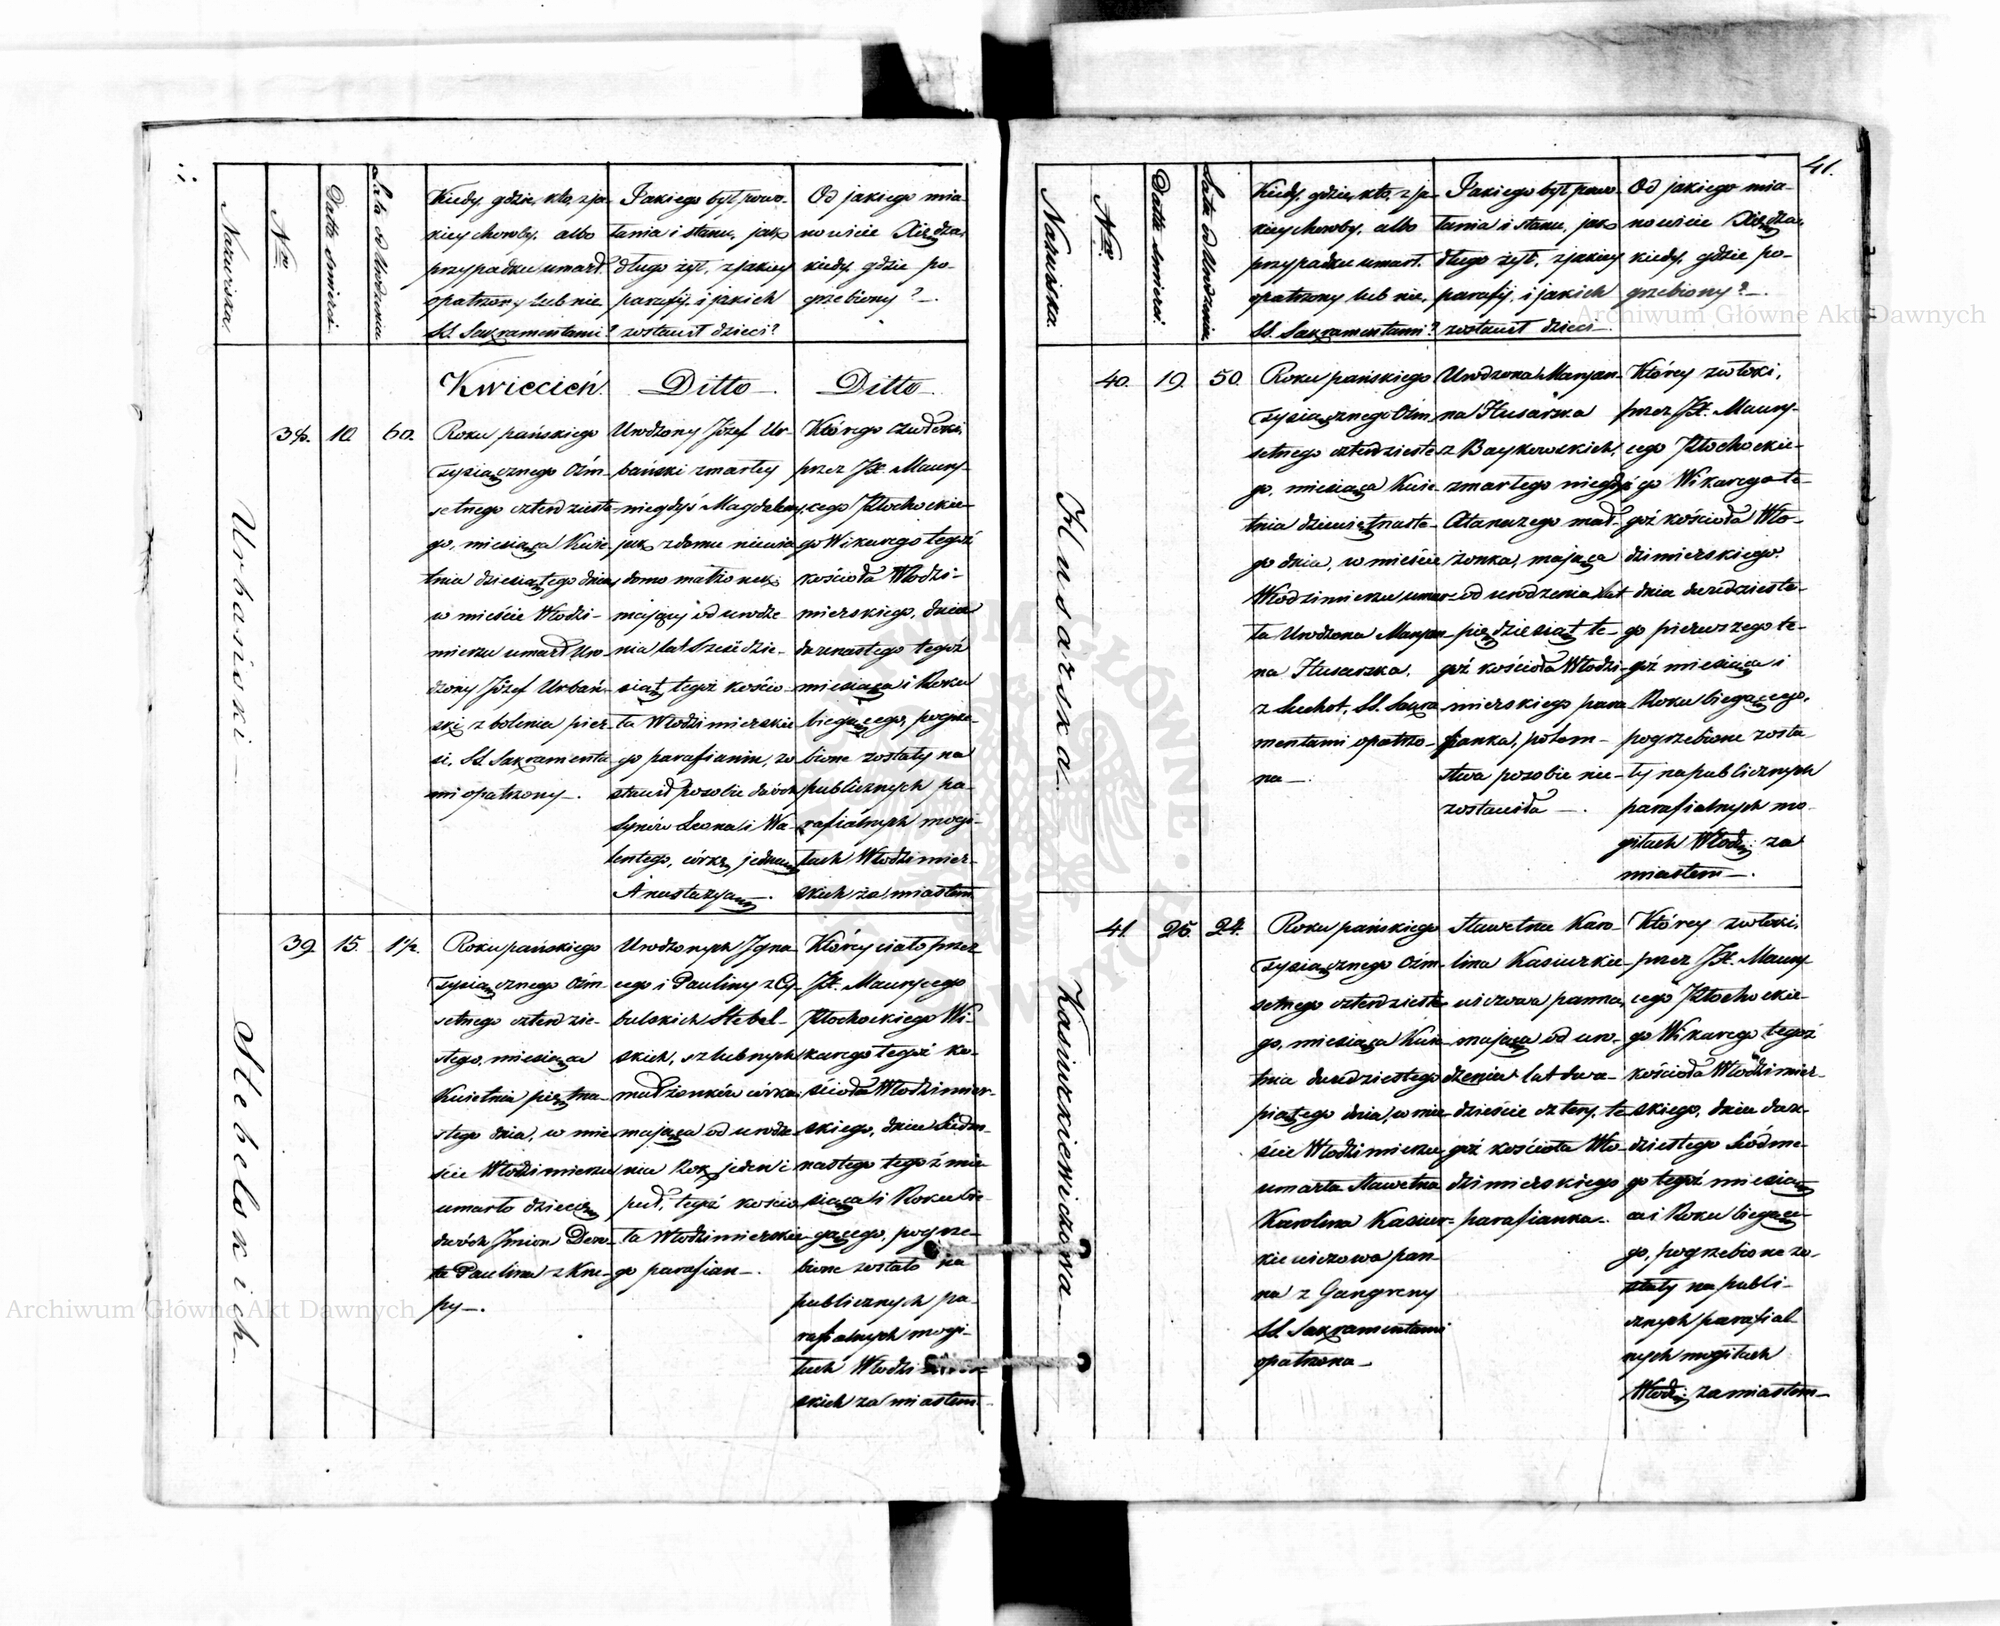 Nazwiska.
Nro
Data śmierci.
Lata od Urodzenia
Kiedy, gdzie, kto, z ja-
kiey choroby, albo
przypadku umarł.
opatrzony lub nie
SS. Sakramentami?
Jakiego był powo-
łania i stanu, jak
długo żył, z jakiey
parafij, i jakich
zostawił dzieci?
Od jakiego mia-
nowicie Xiędza,
kiedy, gdzie po-
grzebiony? —.
Kwiecień.
Ditto —.
Ditto
Urbański —
38.
10.
60.
Roku pańskiego
tysiącznego Ośm-
setnego czterdzieste-
go, miesiąca Kwie-
tnia dziesiątego dnia,
w mieście Włodzi-
mierzu umarł Uro-
dzony Józef Urbań-
ski z bolenia pier-
si, SS. Sakramenta-
mi opatrzony —.
Urodzony Józef Ur-
bański zmarłey
niegdyś Magdaleny
jak z domu niewia
domo małżonek,
mający od urodze-
nia lat sześćdzie-
siąt, tegoż kościo-
ła Włodzimierskie
go parafianin, zo
stawił po sobie dwóch
synów Leona i Wa-
lentego, córkę jedną
Anastazyą —.
Którego zwłoki,
przez JX. Maury-
cego Kłochockie-
go Wikarego tegoż
kościoła Włodzi-
mierskiego, dnia
dwunastego tegoż
miesiąca i Roku
biegącego, pogrze-
bione zostały na
publicznych pa-
rafialnych mogi-
łach Włodzimier-
skich za miastem
Stebelskich —.
39.
15.
1½.
Roku pańskiego
tysiącznego Ośm-
setnego czterdzie-
stego, miesiąca
Kwietnia piętna-
stego dnia, w mie
ście Włodzimierzu
umarło dziecię
dwóch Imion
Paulina z Kru-
py —.
Urodzonych Igna-
cego i Pauliny z Cy-
bulskich Stebel-
skich, szlubnych
małżonków córka
mająca od urodze-
nia Rok jeden i
puł, tegoż kościo-
ła Włodzimierskie
go parafian —.
Którey ciało przez
JX. Maurycego
Kłochockiego Wi-
karego tegoż ko-
ścioła Włodzimier-
skiego, dnia siedm-
nastego tegoż mie
siąca i Roku bie-
gącego, pogrze-
bione zostało na
publicznych pa-
rafialnych mogi-
łach Włodzimier-
skich za miastem
41.
Nazwiska.
Nro
Data śmierci.
Lata od Urodzenia.
Kiedy, gdzie, kto, z ja-
kiey choroby, albo
przypadku umarł.
opatrzony lub nie,
SS. Sakramentami?
Jakiego był powo-
łania i stanu, jak
długo żył, z jakiey
parafij, i jakich
zostawił dzieci —.
Od jakiego mia-
nowicie Xiędza,
kiedy, gdzie po-
grzebiony? —.
Husarska —.
40.
19.
50.
Roku pańskiego
tysiącznego Ośm-
setnego czterdzieste-
go, miesiąca Kwie-
tnia dziewiętnaste-
go dnia, w mieście
Włodzimierzu, umar-
ła Urodzona Maryan-
na Husarska.
z Suchot, SS. Sakra
mentami opatrzo-
na —.
Urodzona Maryan-
na Husarska
z Baykowskich,
zmarłego niegdyś
Atanazego mał-
żonka, mająca
od urodzenia lat
pięćdziesiąt te-
goż kościoła Włodzi-
mierskiego para
fianka, potom-
stwa po sobie nie
zostawiła —.
Którey zwłoki,
przez JX. Maury-
cego Kłochockie-
go Wikarego te-
goż kościoła Wło-
dzimierskiego.
dnia dwudzieste-
go pierwszego te-
goż miesiąca i
Roku biegącego,
pogrzebione zosta
ły na publicznych
parafialnych mo-
giłach Włodz: za
miastem —.
Kasiurkiewiczowa —
41.
25.
24.
Roku pańskiego
tysiącznego Ośm-
setnego czterdzieste
go, miesiąca Kwie
tnia dwudziestego
piątego dnia, w mie-
ście Włodzimierzu
umarła Sławetna
Karolina Kasiur-
kiewiczowa pan-
na z Gangreny
SS. Sakramentami
opatrzona —
Sławetna Karo-
lina Kasiurkie-
wiczowa panna,
mająca od uro-
dzenia lat dwa-
dzieście cztery, te
goż kościoła Wło-
dzimierskiego
parafianka.
Którey zwłoki,
przez JX. Maury-
cego Kłochockie-
go Wikarego tegoż
kościoła Włodzimier-
skiego, dnia dwu-
dziestego siódme-
go tegoż miesią
ca i Roku biegące-
go, pogrzebione zo-
stały na publi-
cznych parafial-
nych mogiłach
Włodz: za miastem —
Archiwum Główne Akt Dawnych
Archiwum Główne Akt Dawnych